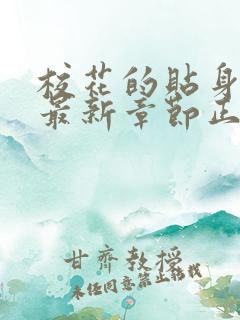 校花的貼身
最新章節正
甘齊教授
未经同意禁止转载